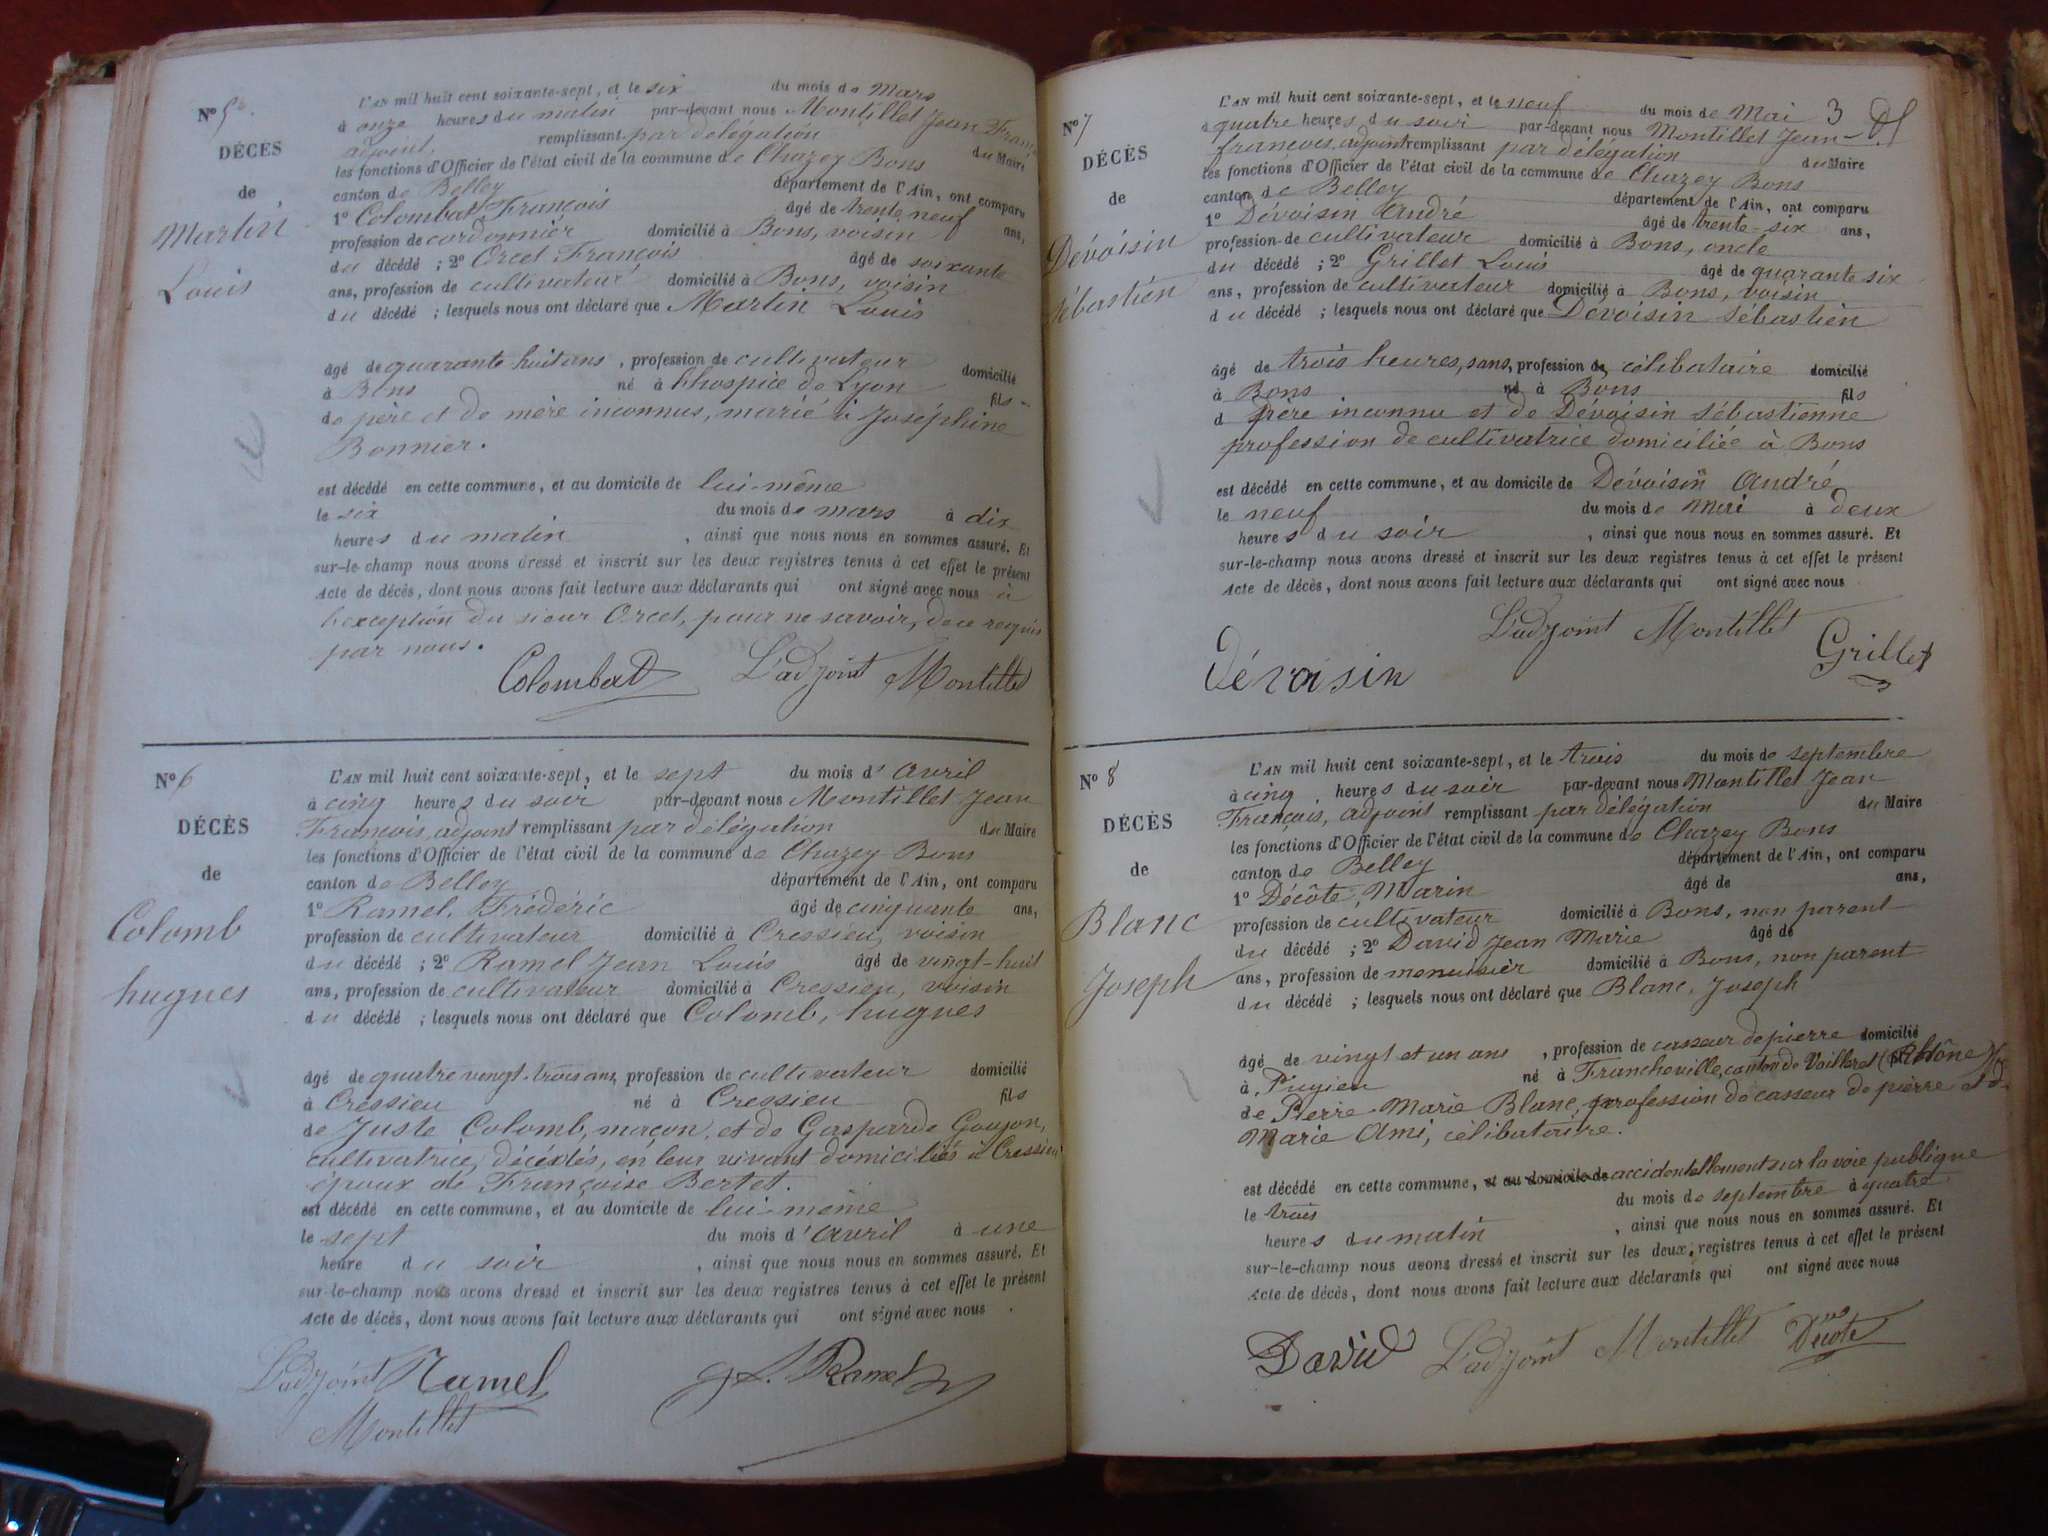 No 5
DÉCÈS
de
Martin
Louis
L'AN mil huit cent soixante-sept, et le six du mois de Mars
à onze heures du matin par-devant nous Montillet Jean François
adjoint, remplissant par délégation du Maire
les fonctions d'Officier de l'état civil de la commune de Chazey Bons
canton de Belley département de l'Ain, ont comparu
1º Colombat François âgé de trente neuf ans,
profession de cordonnier domicilié à Bons, voisin
du décédé ; 2º Orcet François âgé de soixante
ans, profession de cultivateur domicilié à Bons, voisin
du décédé ; lesquels nous ont déclaré que Martin Louis
âgé de quarante huit ans, profession de cultivateur domicilié
à Bons né à l'hospice de Lyon fils
de père et de mère inconnus, marié à Joséphine
Bonnier.
est décédé en cette commune, et au domicile de lui-même
le six du mois de mars à dix
heures du matin, ainsi que nous nous en sommes assuré. Et
sur-le-champ nous avons dressé et inscrit sur les deux registres tenus à cet effet le présent
Acte de décès, dont nous avons fait lecture aux déclarants qui ont signé avec nous à
l'exception du sieur Orcet, pour ne savoir, de ce requis
par nous.
Colombat L'adjoint Montillet
No 6
DÉCÈS
de
Colomb
hugues
L'AN mil huit cent soixante-sept, et le sept du mois d'avril
à cinq heures du soir par-devant nous Montillet Jean
François, adjoint remplissant par délégation du Maire
les fonctions d'Officier de l'état civil de la commune de Chazey-Bons
canton de Belley département de l'Ain, ont comparu
1º Ramel, Frédéric âgé de cinquante ans,
profession de cultivateur domicilié à Cressieu, voisin
du décédé ; 2º Ramel Jean Louis âgé de vingt-huit
ans, profession de cultivateur domicilié à Cressieu, voisin
du décédé ; lesquels nous ont déclaré que Colomb, hugues
âgé de quatre vingt-trois ans, profession de cultivateur domicilié
à Cressieu né à Cressieu fils
de Juste Colomb, maçon, et de Gasparde Goujon,
cultivatrice, décédés, en leur vivant domiciliés à Cressieu
époux de Françoise Bertet.
est décédé en cette commune, et au domicile de lui-même
le sept du mois d'avril à une
heure du soir, ainsi que nous nous en sommes assuré. Et
sur-le-champ nous avons dressé et inscrit sur les deux registres tenus à cet effet le présent
Acte de décès, dont nous avons fait lecture aux déclarants qui ont signé avec nous.
L'adjoint Ramel J. L. Ramel
Montillet
No 7
DÉCÈS
de
Dévoisin
Sébastien
L'AN mil huit cent soixante-sept, et le neuf du mois de Mai 3
à quatre heures du soir par-devant nous Montillet Jean-
françois, adjoint remplissant par délégation du Maire
les fonctions d'Officier de l'état civil de la commune de Chazey Bons
canton de Belley département de l'Ain, ont comparu
1º Dévoisin André âgé de trente-six ans,
profession de cultivateur domicilié à Bons, oncle
du décédé ; 2º Grillet Louis âgé de quarante six
ans, profession de cultivateur domicilié à Bons, voisin
du décédé ; lesquels nous ont déclaré que Dévoisin Sébastien
âgé de trois heures, sans, profession de, célibataire domicilié
à Bons né à Bons fils
d père inconnu et de Dévoisin Sébastienne
profession de cultivatrice domiciliée à Bons
est décédé en cette commune, et au domicile de Dévoisin André
le neuf du mois de Mai à deux
heures du soir, ainsi que nous nous en sommes assuré. Et
sur-le-champ nous avons dressé et inscrit sur les deux registres tenus à cet effet le présent
Acte de décès, dont nous avons fait lecture aux déclarants qui ont signé avec nous
L'adjoint Montillet
Dévoisin Grillet
No 8
DÉCÈS
de
Blanc
Joseph
L'AN mil huit cent soixante-sept, et le trois du mois de septembre
à cinq heures du soir par-devant nous Montillet Jean
François, adjoint remplissant par délégation du Maire
les fonctions d'Officier de l'état civil de la commune de Chazey Bons
canton de Belley département de l'Ain, ont comparu
1º Décôte, Marin âgé de ans,
profession de cultivateur domicilié à Bons, non parent
du décédé ; 2º David Jean Marie âgé de
ans, profession de menuisier domicilié à Bons, non parent
du décédé ; lesquels nous ont déclaré que Blanc, Joseph
âgé de vingt et un ans, profession de casseur de pierre domicilié
à Pugieu né à Francheville, canton de Vailleret (Rhône) fils
de Pierre-Marie Blanc, profession de casseur de pierre et de
Marie Ami, célibataire.
est décédé en cette commune, et au domicile de accidentellement sur la voie publique
le trois du mois de septembre à quatre
heures du matin, ainsi que nous nous en sommes assuré. Et
sur-le-champ nous avons dressé et inscrit sur les deux registres tenus à cet effet le présent
Acte de décès, dont nous avons fait lecture aux déclarants qui ont signé avec nous
David L'adjoint Montillet Décote